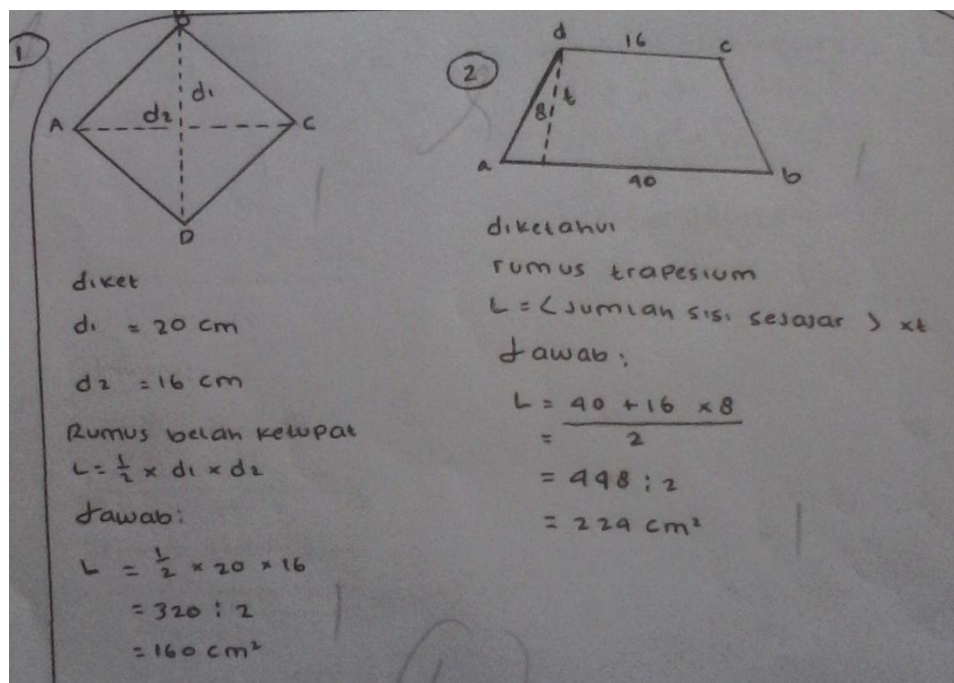 1
B
d1
d2
A
C
D
diket
d1 = 20 cm
d2 = 16 cm
Rumus belah ketupat
L = 1/2 x d1 x d2
Jawab:
L = 1/2 x 20 x 16
= 320 : 2
= 160 cm²
2
d
16
c
8
t
a
40
b
diketahui
rumus trapesium
L = (Jumlah sisi sejajar) xt
Jawab:
L = 40 + 16 x 8
= 2
= 448 : 2
= 224 cm²